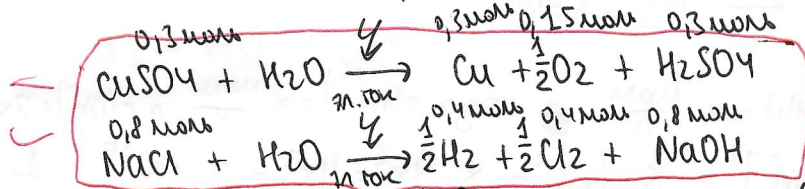 0,3 моль 0,3 моль 0,15 моль 0,3 моль
CuSO4 + H2O эл. ток → Cu + 1/2 O2 + H2SO4
0,8 моль 0,4 моль 0,4 моль 0,8 моль
NaCl + H2O эл. ток → 1/2 H2 + 1/2 Cl2 + NaOH